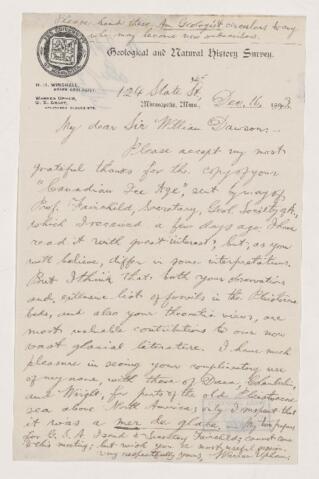 Please hand these Am. Geologist circulars to any
who may become new subscribers.
Geological and Natural History Survey.
N. H. WINCHELL,
STATE GEOLOGIST.
WARREN UPHAM,
U. S. GRANT,
ASSISTANT GEOLOGISTS.
124 State St.,
Minneapolis, Minn., Dec. 16, 1893.
My dear Sir William Dawson:
Please accept my most
grateful thanks for the copy of your
"Canadian Ice Age," sent by way of
Prof. Fairchild, Secretary, Geol. Society of A.,
which I received a few days ago. I have
read it with great interest; but, as you
will believe, differ in some interpretations.
But I think that both your observations
and extensive list of fossils in the Pleistocene
beds, and also your theoretic views, are
most valuable contributions to our now
vast glacial literature. I have much
pleasure in seeing your complimentary use
of my name, with those of Dana, Chamberlin,
and Wright, for parts of the old Pleistocene
sea above North America; only I suspect that
it was a mer de glace. My two papers
for G.S.A. I send to Secretary Fairchild; cannot come
to this meeting; but wish you a most useful session.
Very respectfully yours, Warren Upham.